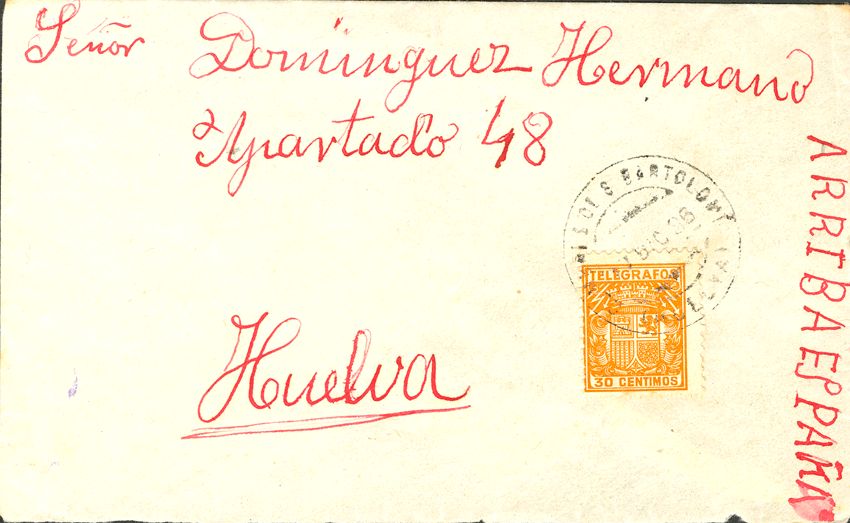 Señor Dominguez Hermano
Apartado 48
Huelva
ARRIBA ESPAÑA
S BARTOLOM
TELEGRAFOS
30 CENTIMOS